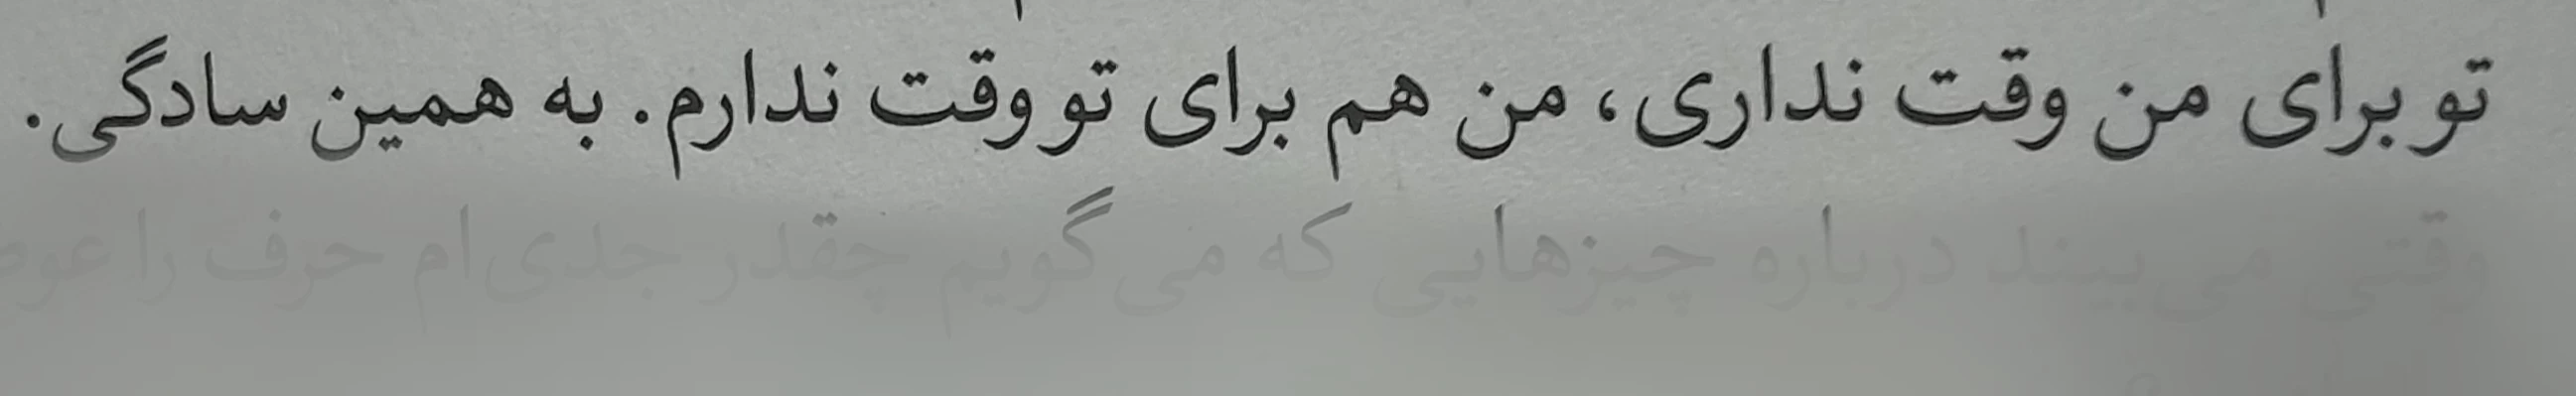 تو برای من وقت نداری، من هم برای تو وقت ندارم. به همین سادگی.
وقتی می‌بیند درباره چیزهایی که می‌گویم چقدر جدی‌ام حرف را